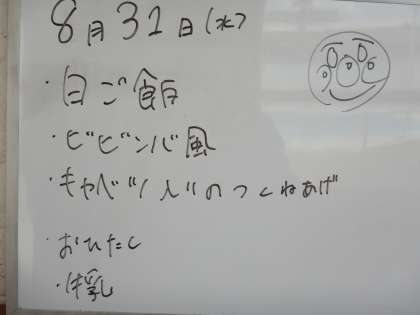 8月31日(水)
・白ご飯
・ビビンバ風
・キャベツ入りのつくねあげ
・おひたし
・牛乳